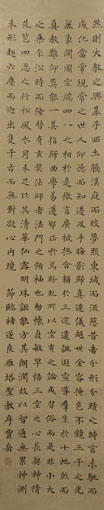 然則大教之興基乎西土騰漢庭而皎夢照東域而流慈昔者分形分跡之時言未馳而
成化當常現常之世人仰德而知遵及乎晦影歸真遷儀越世金容掩色不鏡三千之光
麗象開圖空端四八之相於是微言廣被拯含類於三途遺訓遐宣導群生於十地然而
真教難仰莫能一其指歸曲學易遵邪正於焉紛糾所以空有之論或習俗而是非大小
之乘乍沿時而隆替有玄奘法師者法門之領袖也幼懷貞敏早悟三空之心長契神情
先苞四忍之行松風水月未足比其清華仙露明珠詎能方其朗潤故以智通無累神測
未形超六塵而迥出隻千古而無對凝心內境 節臨褚遂良雁塔聖教序